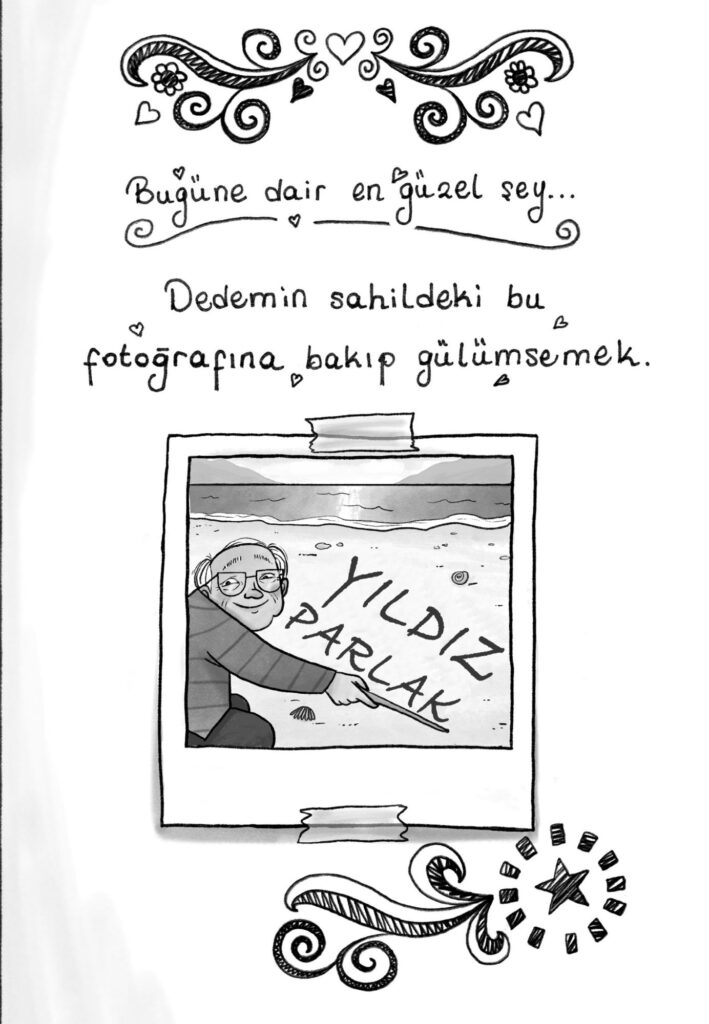 Bugüne dair en güzel şey...
Dedemin sahildeki bu
fotoğrafına bakıp gülümsemek.
YILDIZ
PARLAK